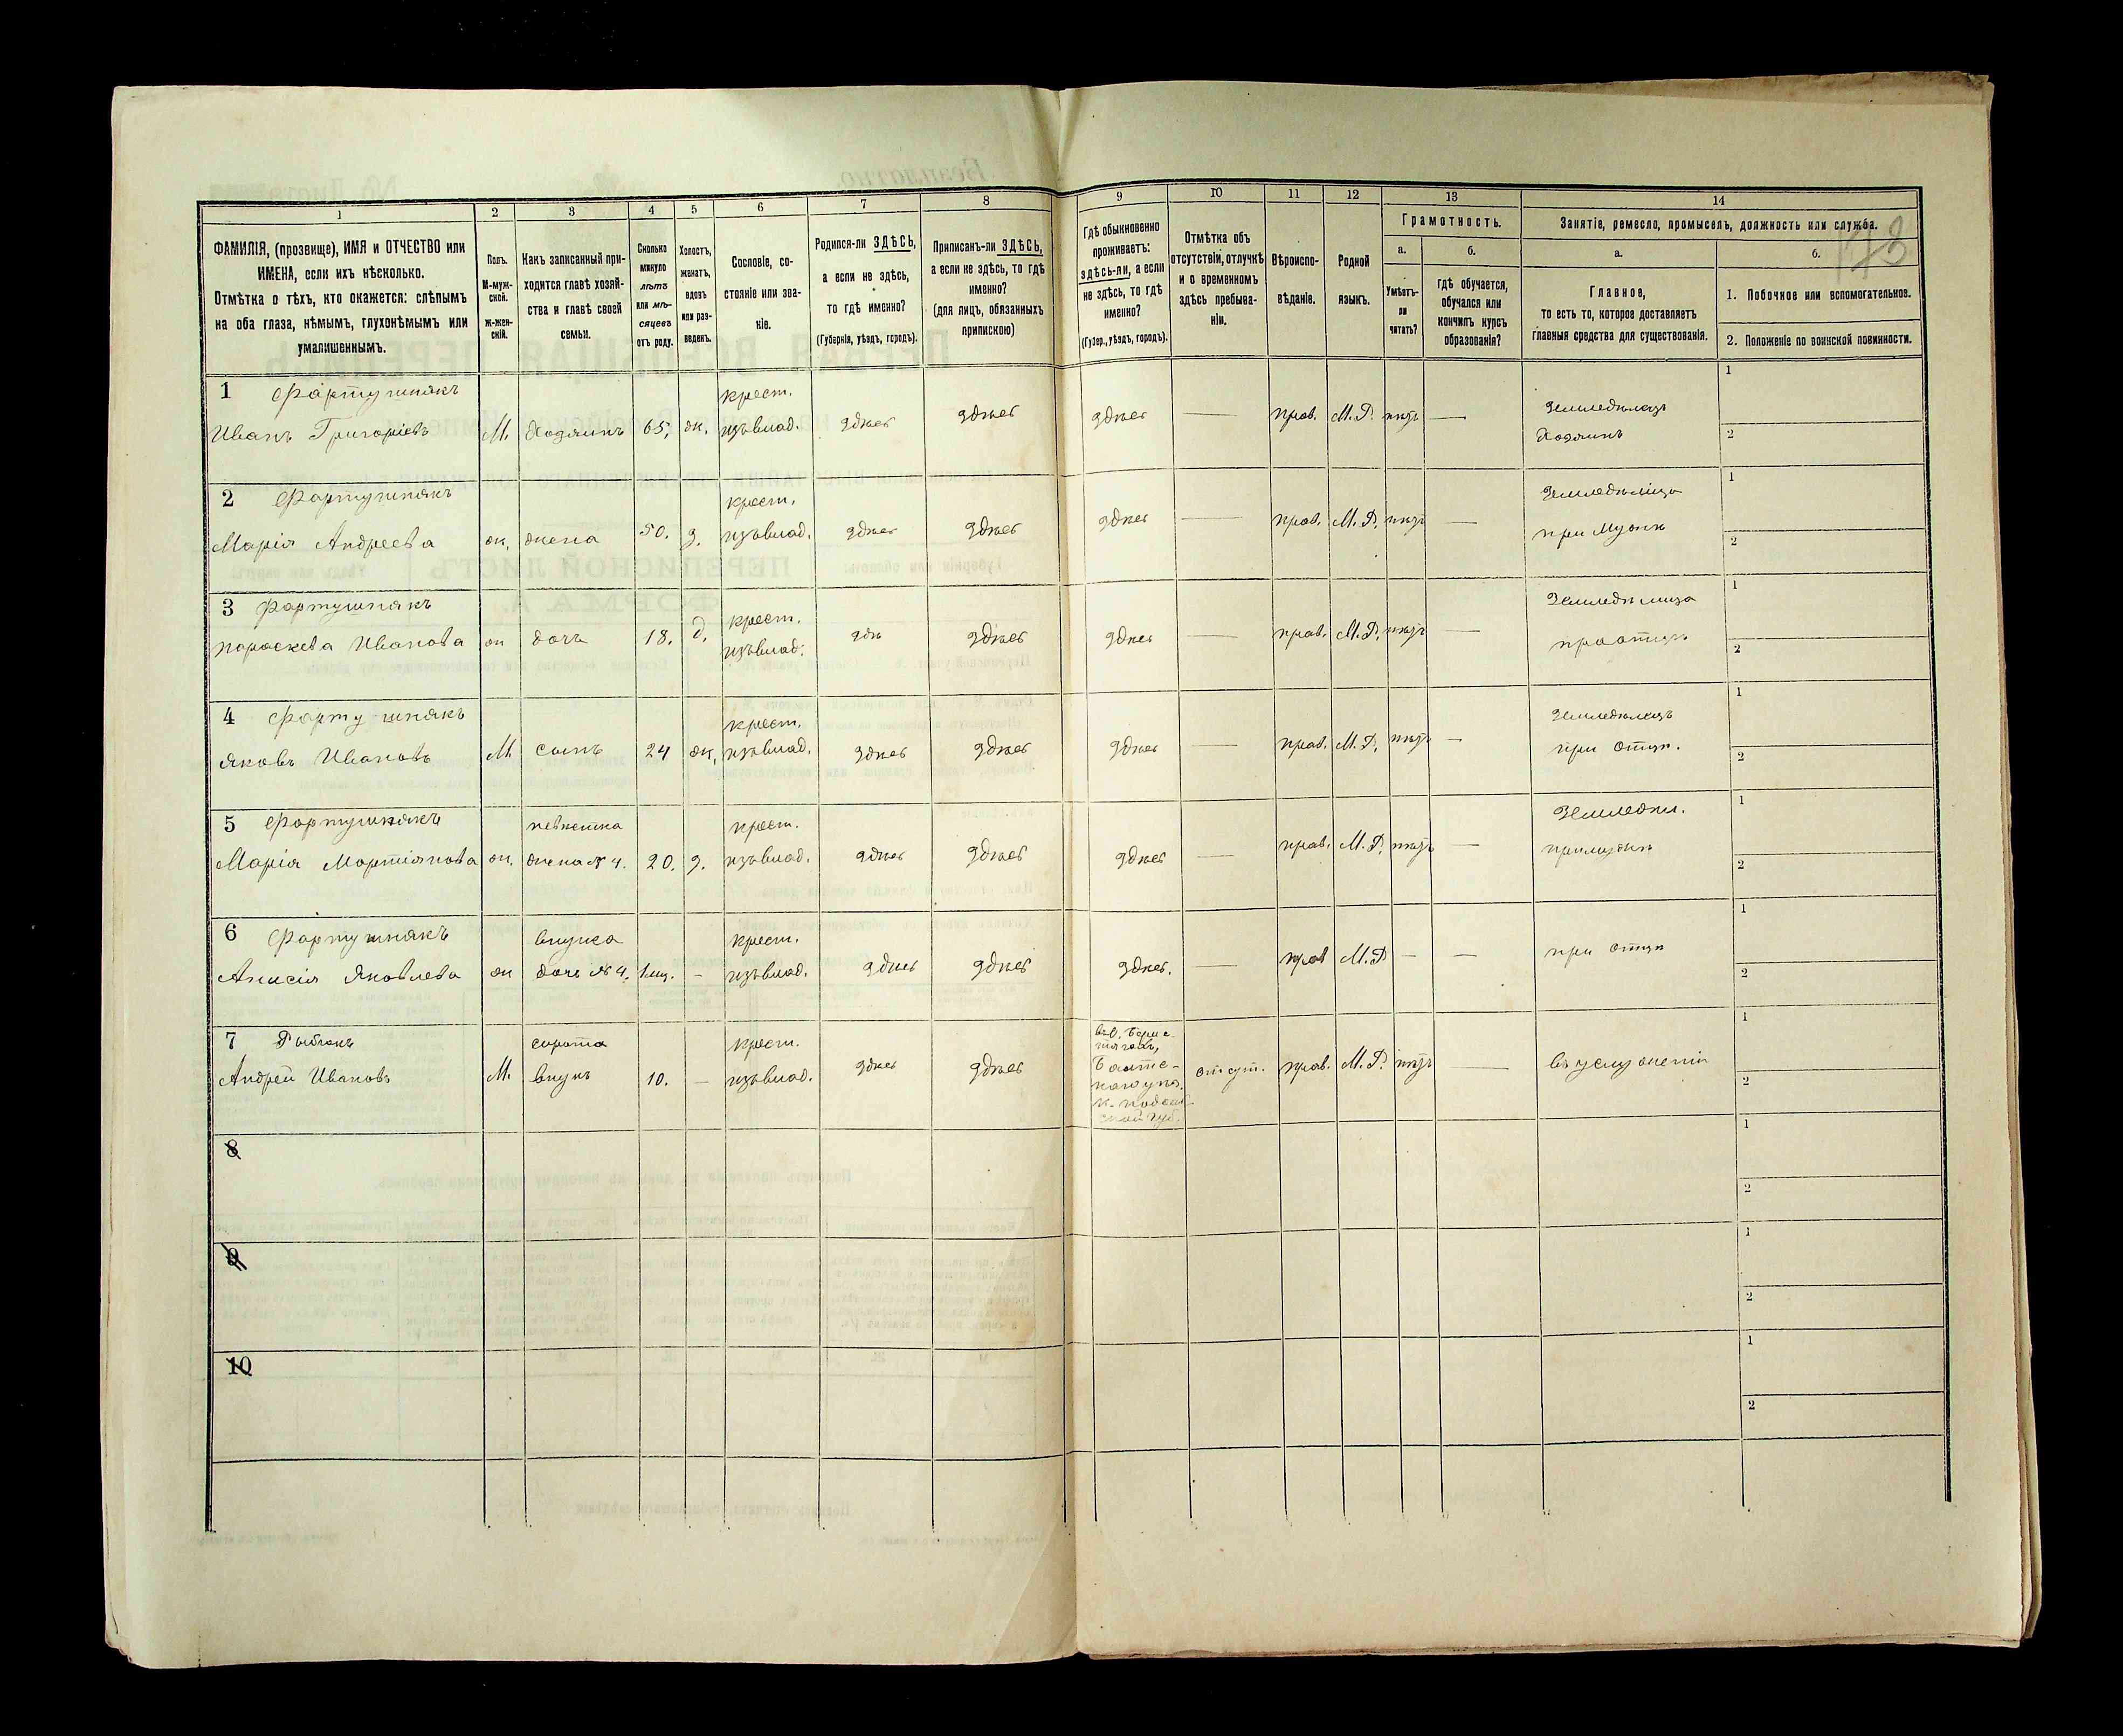 1 2 3 4 5 6 7 8 9 10 11 12 13 14
ФАМИЛІЯ, (прозвище), ИМЯ и ОТЧЕСТВО или
ИМЕНА, если ихъ нѣсколько.
Отмѣтка о тѣхъ, кто окажется: слѣпымъ
на оба глаза, нѣмымъ, глухонѣмымъ или
умалишеннымъ.
Полъ.
М-муж-
ской.
ж-жен-
скій.
Какъ записанный при-
ходится главѣ хозяй-
ства и главѣ своей
семьи.
Сколько
минуло
лѣтъ
или мѣ-
сяцевъ
отъ роду.
Холостъ,
женатъ,
вдовъ
или раз-
веденъ.
Сословіе, со-
стояніе или зва-
ніе.
Родился-ли ЗДѢСЬ,
а если не здѣсь,
то гдѣ именно?
(Губернія, уѣздъ, городъ).
Приписанъ-ли ЗДѢСЬ,
а если не здѣсь, то гдѣ
именно?
(для лицъ, обязанныхъ
припискою)
Гдѣ обыкновенно
проживаетъ:
здѣсь-ли, а если
не здѣсь, то гдѣ
именно?
(Губер., уѣздъ, городъ).
Отмѣтка объ
отсутствіи, отлучкѣ
и о временномъ
здѣсь пребыва-
ніи.
Вѣроиспо-
вѣданіе.
Родной
языкъ.
Грамотность.
а. б.
Умѣетъ-
ли
читать?
гдѣ обучается,
обучался или
кончилъ курсъ
образованія?
Занятіе, ремесло, промыселъ, должность или служба.
а. б.
Главное,
то есть то, которое доставляетъ
главныя средства для существованія.
1. Побочное или вспомогательное.
2. Положеніе по воинской повинности.
1 Фартушнякъ крест. Земледѣлецъ 1
Иванъ Григоріевъ М. Хозяинъ 65. ж. изъвлад. здѣсь здѣсь здѣсь — прав. М.Р. нѣтъ — Хозяинъ 2
2 Фартушнякъ крест. Земледѣлица 1
Марія Андреева ж. жена 50. з. изъвлад. здѣсь здѣсь здѣсь — прав. М.Р. нѣтъ — при Мужѣ 2
3 Фартушнякъ крест. Земледѣлица 1
Параскева Иванова ж дочь 18. д. изъвлад. здѣ здѣсь здѣсь — прав. М.Р. нѣтъ — 2
4 Фартушнякъ крест. Земледѣлецъ 1
Яковъ Ивановъ М. сынъ 24 ж. изъвлад. здѣсь здѣсь здѣсь — прав. М.Р. нѣтъ — при отцѣ. 2
5 Фартушнякъ невѣстка крест. Земледѣл. 1
Марія Мартіянова ж. жена №4. 20. з. изъвлад. здѣсь здѣсь здѣсь — прав. М.Р. нѣтъ — примужѣ 2
6 Фартушнякъ внучка крест. 1
Анисія Яковлева ж дочь №4. 1мц. - изъвлад. здѣсь здѣсь здѣсь. — прав М.Р — — при отцѣ 2
7 Рыбакъ сирота крест. 1
Андрей Ивановъ М. внукъ 10. — изъвлад. здѣсь здѣсь
Балтс-
каго уѣз.
ской губ.
отсут. прав. М.Р. нѣтъ — въ услуженіи 2
8 1
2
9 1
2
10 1
2